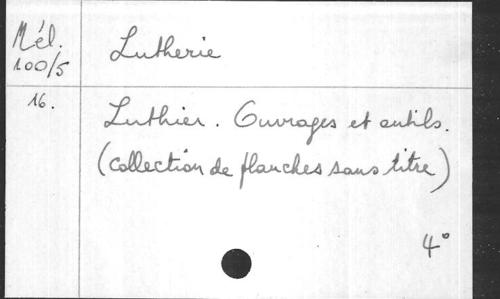 Mél.
100/5
Lutherie
16.
Luthier. Ouvrages et outils.
(collection de planches sans titre)
4°